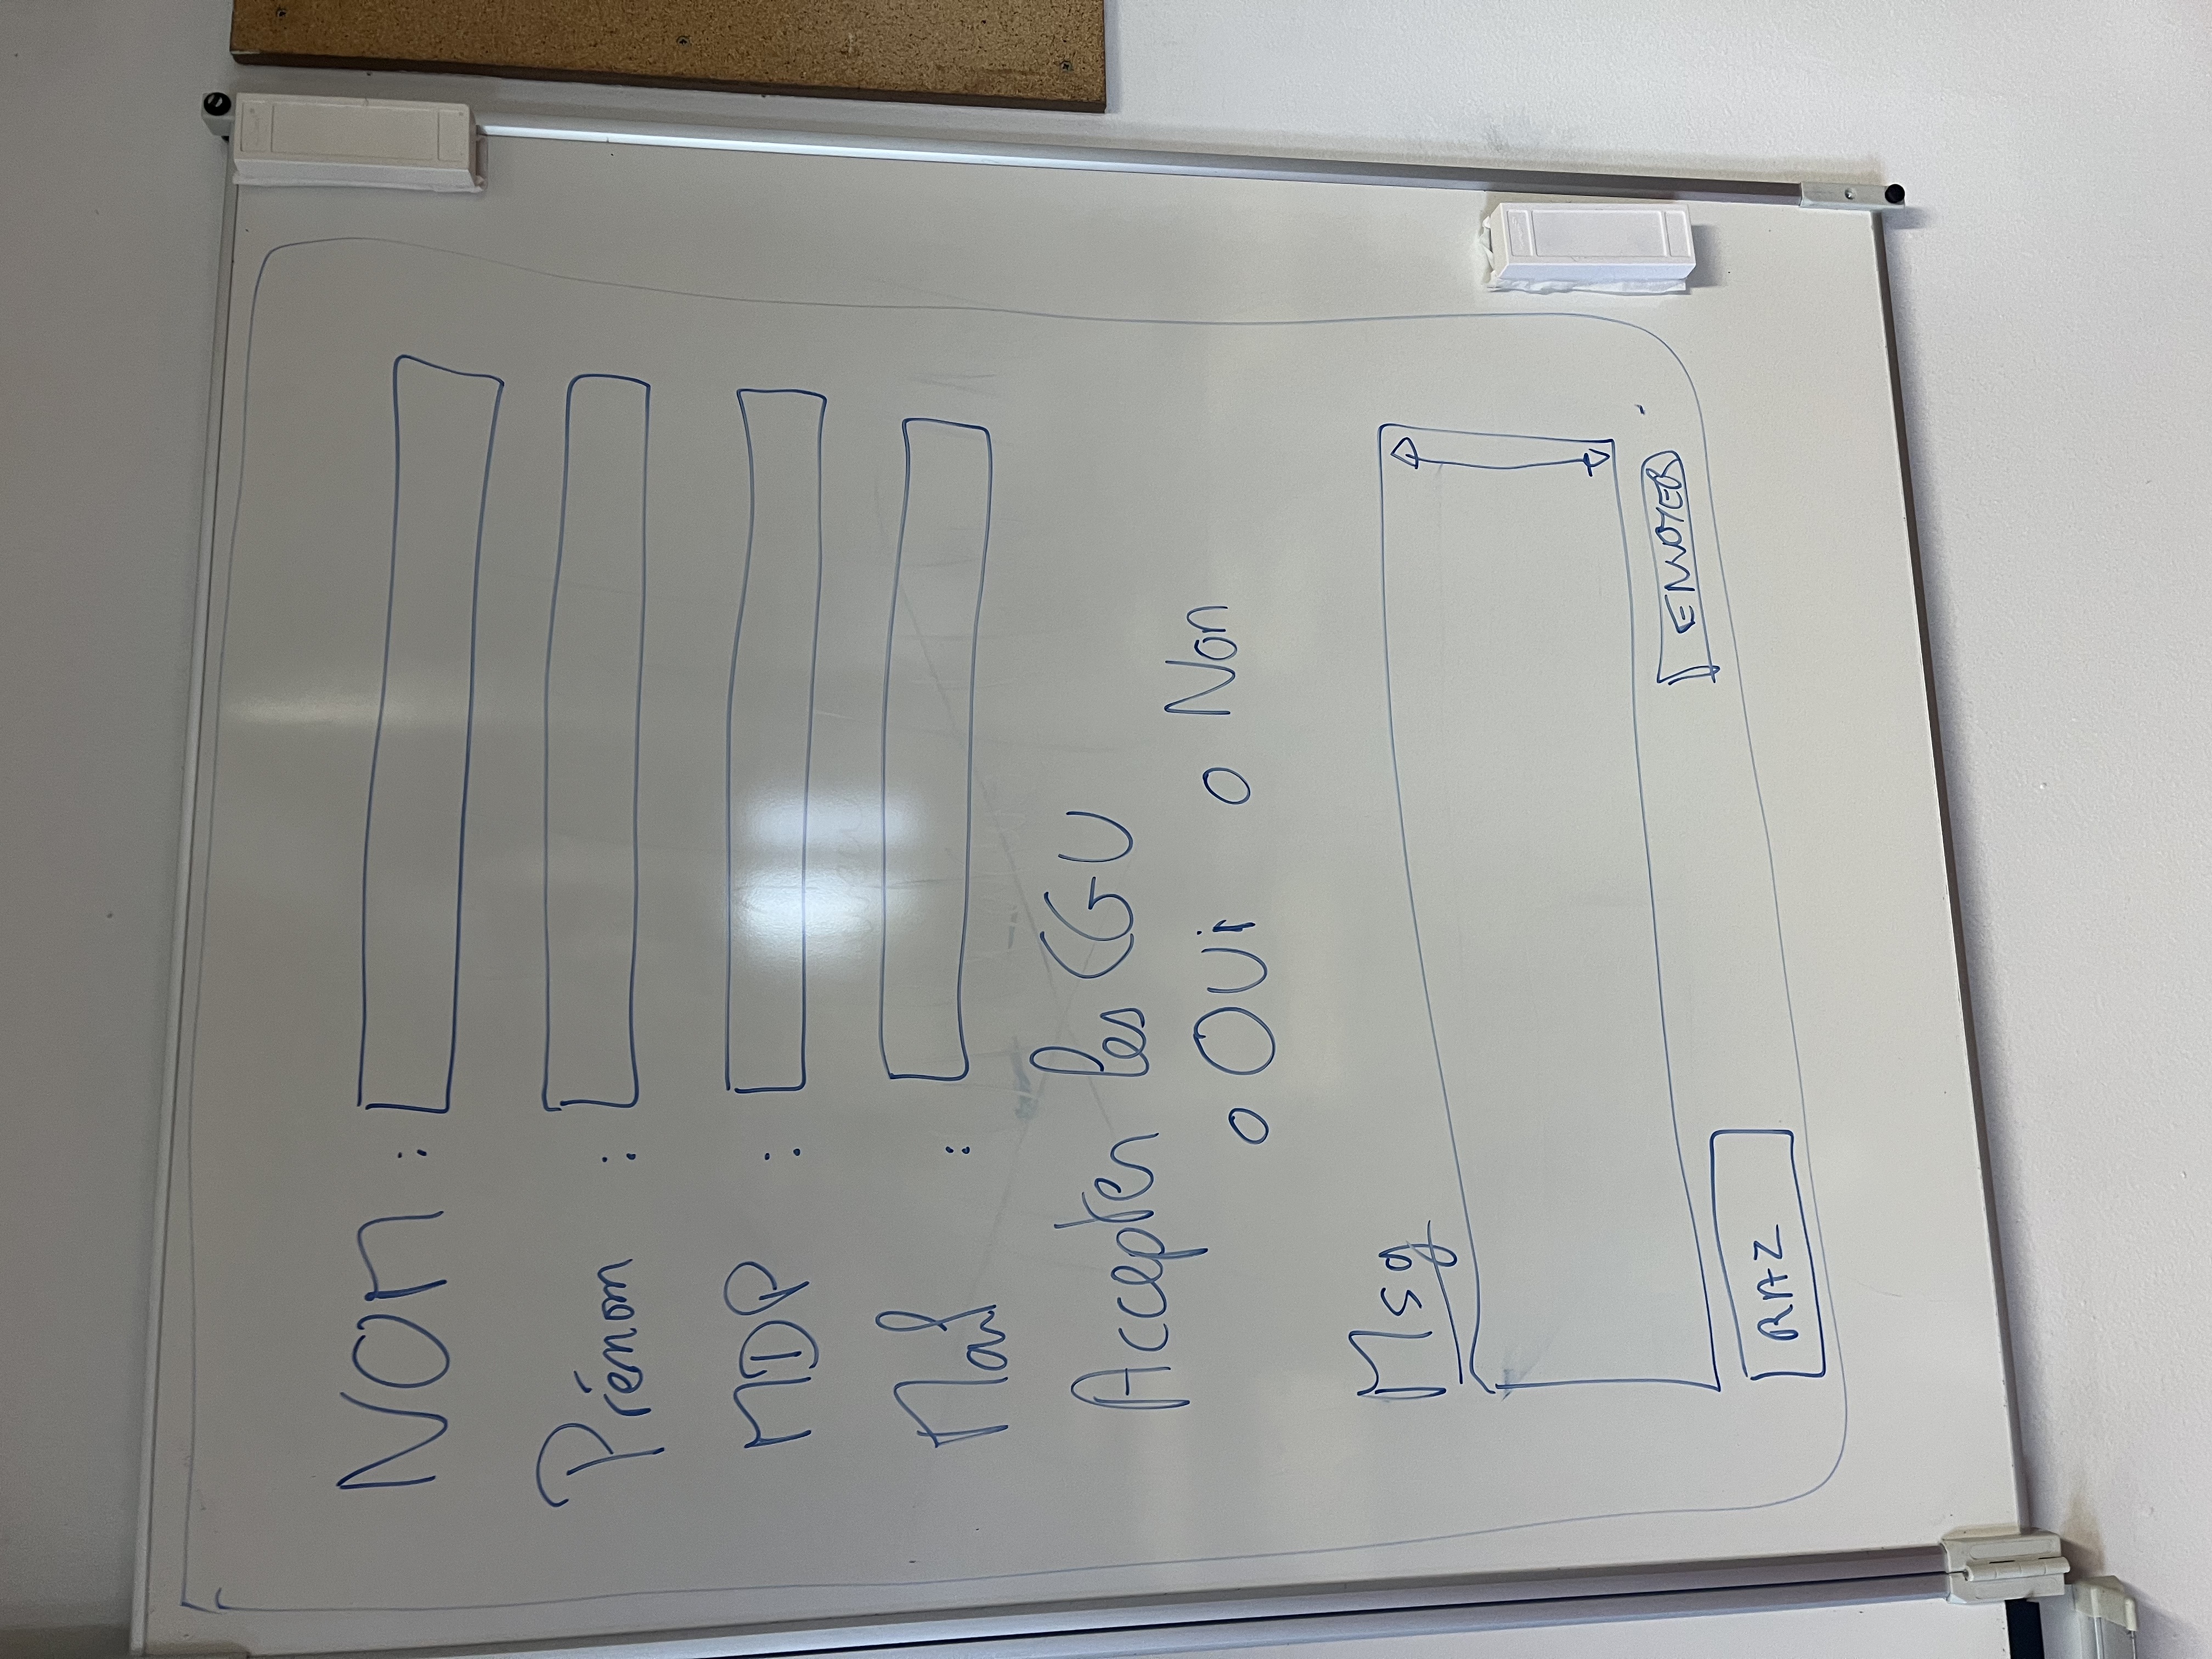 NOM :
Prénom :
MDP :
Mail :
Accepter les CGU
Oui Non
Msg
ENVOYER
RAZ